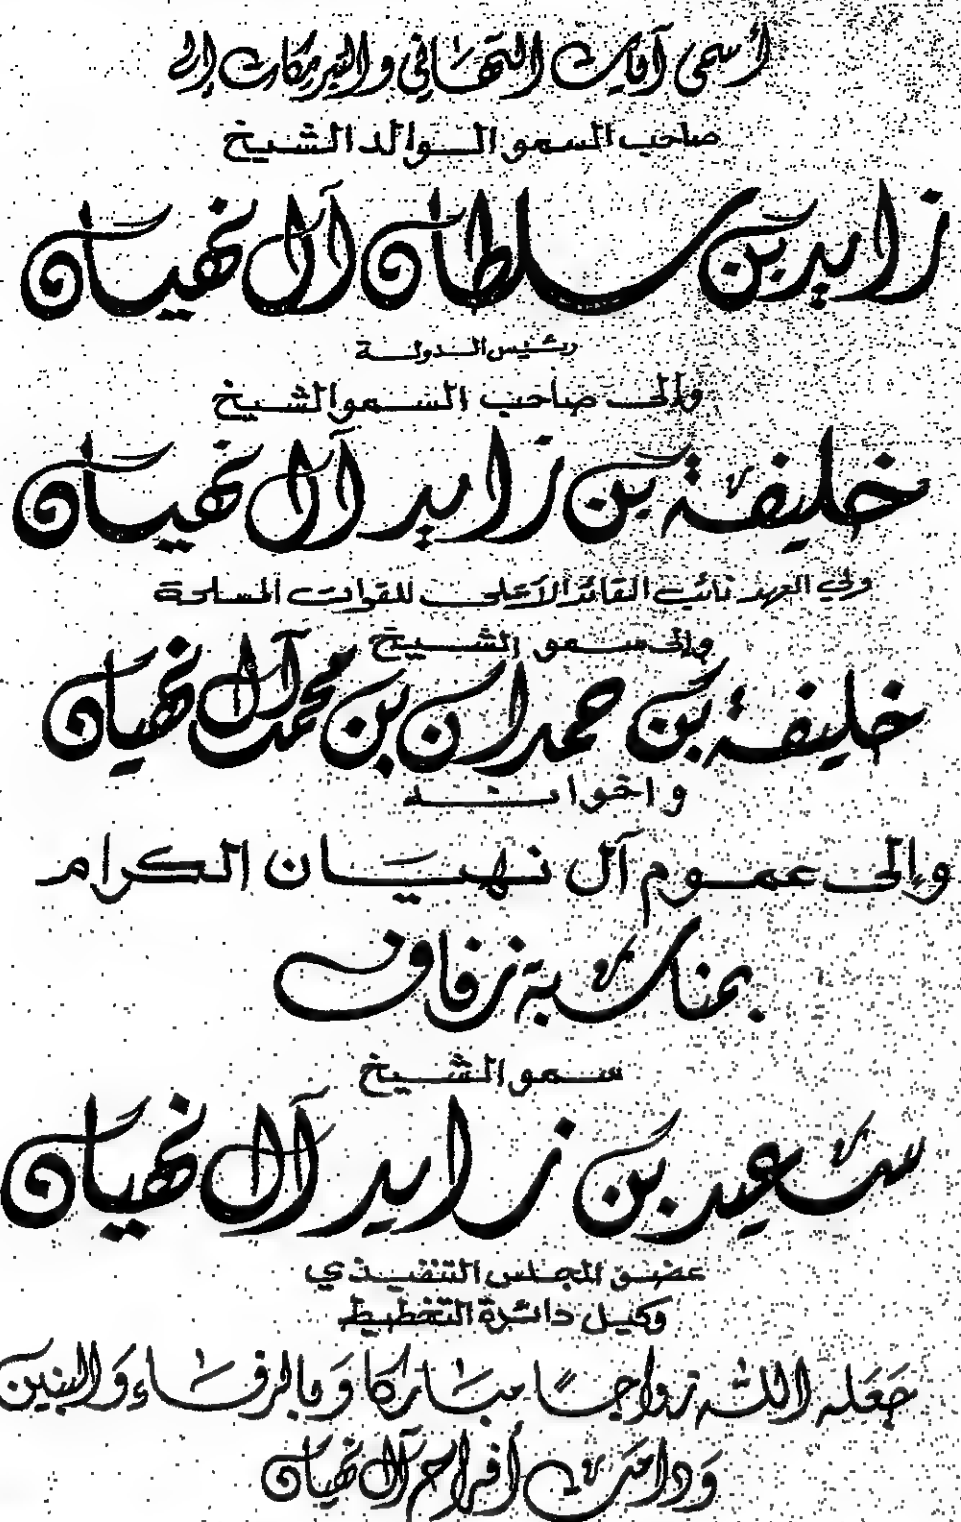 أسمى آيات التهاني والتبريكات إلى
صاحب السمو الوالد الشيخ
زايد بن سلطان آل نهيان
رئيس الدولة
وإلى صاحب السمو الشيخ
خليفة بن زايد آل نهيان
ولي العهد نائب القائد الأعلى للقوات المسلحة
وإلى سمو الشيخ
خليفة بن حمدان بن محمد آل نهيان
واخوانه
وإلى عموم آل نهيان الكرام
بمناسبة زفاف
سمو الشيخ
سعيد بن زايد آل نهيان
عضو المجلس التنفيذي
وكيل دائرة التخطيط
جَعَله اللّه زواجًا مباركا وَبالرفاء وَالبنين
وَدامت أفراح آل نهيان